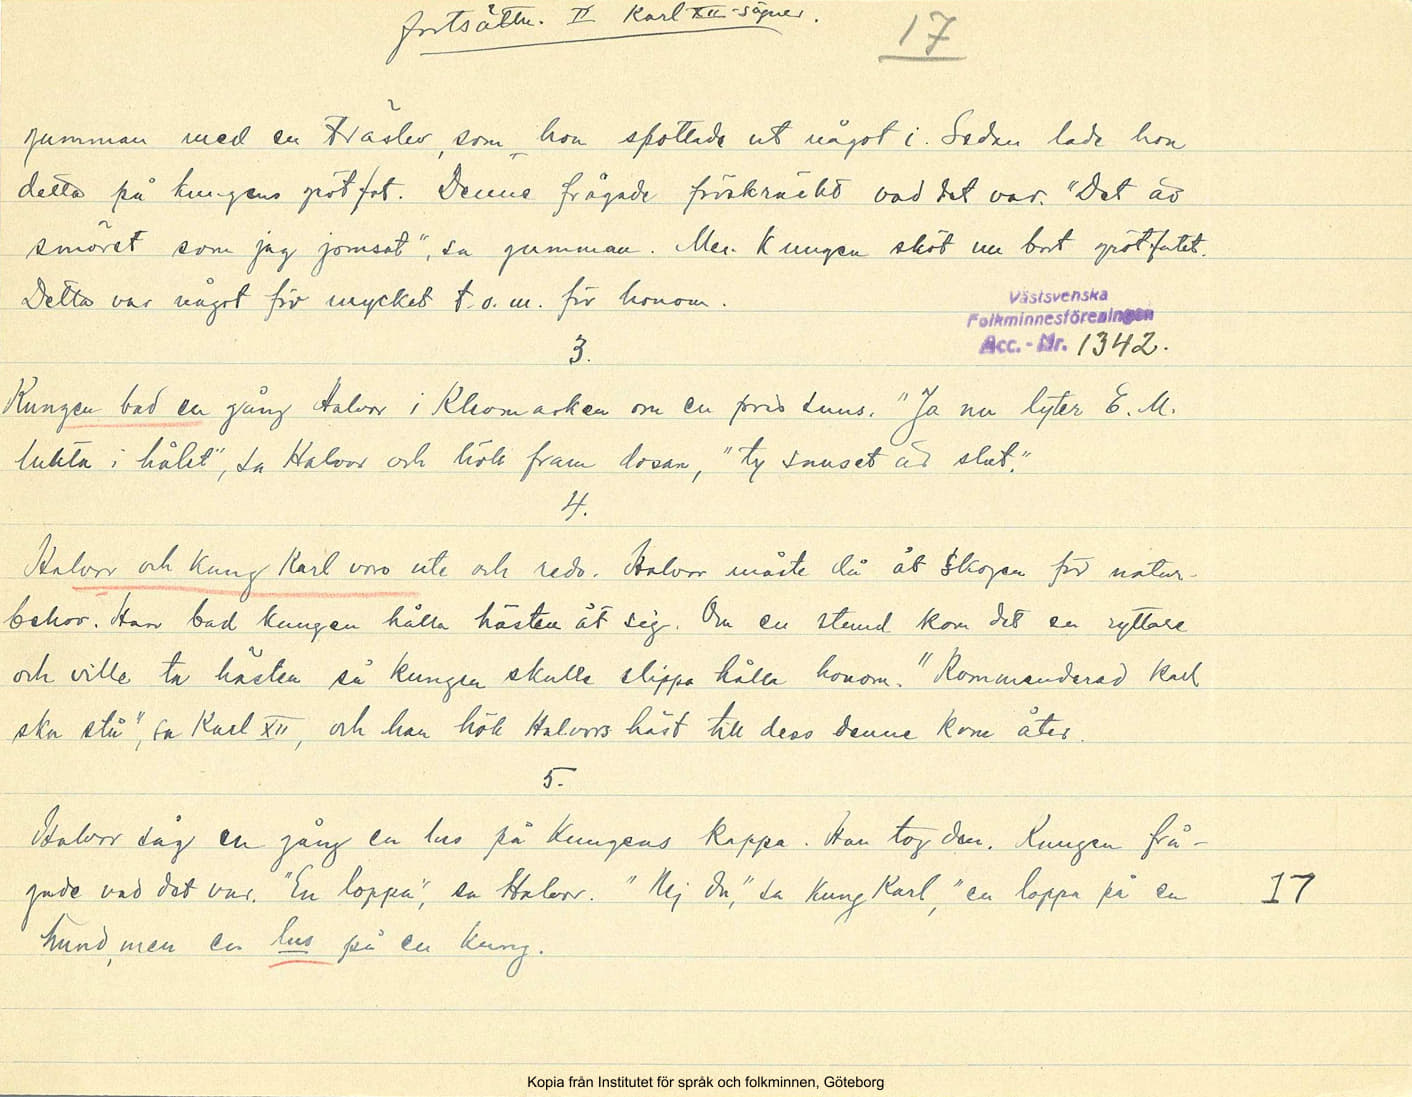 fortsättn. II Karl XII-sägner.
17
gumman med en träslev, som hon spottade ut något i. Sedan lade hon
detta på kungens grötfat. Denne frågade förskräckt vad det var. "Det är
smöret som jag jomsat", sa gumman. Men Kungen sköt nu bort grötfatet.
Detta var något för mycket t.o.m. för honom.
Västsvenska
Folkminnesföreningen
Acc.-Nr. 1342.
3.
Kungen bad en gång Halvor i Klomarken om en pris snus. "Ja nu lyter E.M.
lukta i hålet", sa Halvor och höll fram dosan, "ty snuset är slut."
4.
Halvor och Kung Karl voro ute och redo. Halvor måste då åt Skogen för natur-
behov. Han bad kungen hålla hästen åt sig. Om en stund kom det en ryttare
och ville ta hästen så kungen skulle slippa hålla honom. "Kommenderad karl
ska stå", sa Karl XII, och han höll Halvors häst till dess denne kom åter.
5.
Halvor såg en gång en lus på Kungens kappa. Han tog den. Kungen frå-
gade vad det var. "En loppa", sa Halvor. "Nej du", sa Kung Karl, "en loppa på en
17
hund, men en lus på en kung.
Kopia från Institutet för språk och folkminnen, Göteborg